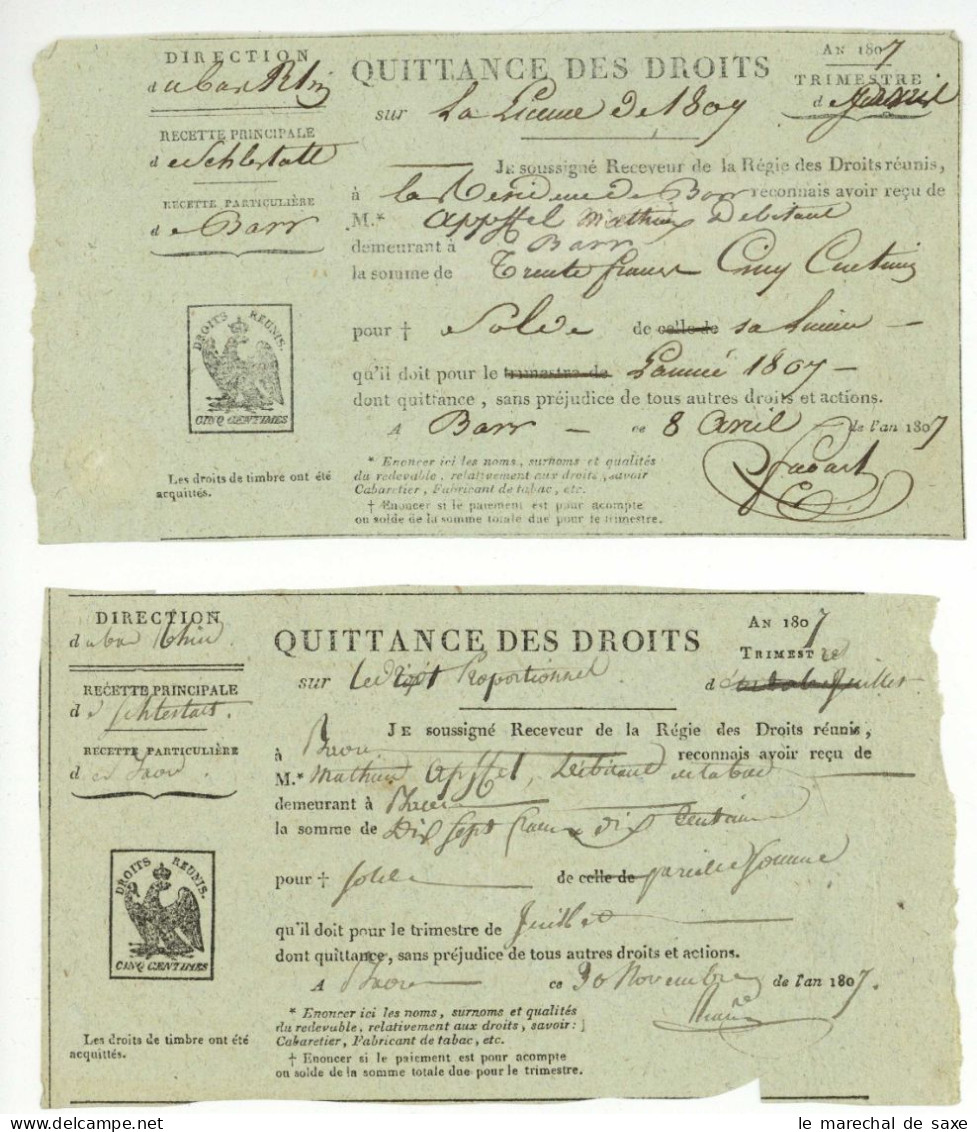 DIRECTION
du bas Rhin
RECETTE PRINCIPALE
de Schlestatt
RECETTE PARTICULIÈRE
de Barr
DROITS REUNIS.
CINQ CENTIMES
Les droits de timbre ont été
acquittés.
QUITTANCE DES DROITS
sur La Licence de 1807
AN 1807
TRIMESTRE
d
JE soussigné Receveur de la Régie des Droits réunis,
à la Residence de Barr reconnais avoir reçu de
M.* Apffel Mathieu Debitant
demeurant à Barr
la somme de Trente francs Cinq Centimes
pour † Solde de celle de sa Licence
qu'il doit pour le trimestre de L'année 1807
dont quittance, sans préjudice de tous autres droits et actions.
A Barr ce 8 Avril de l'an 1807
* Enoncer ici les noms, surnoms et qualités
du redevable, relativement aux droits, savoir
Cabaretier, Fabricant de tabac, etc.
† Enoncer si le paiement est pour acompte
ou solde de la somme totale due pour le trimestre.
DIRECTION
du bas Rhin
RECETTE PRINCIPALE
de Schlestatt.
RECETTE PARTICULIÈRE
de Barr
DROITS REUNIS.
CINQ CENTIMES
Les droits de timbre ont été
acquittés.
QUITTANCE DES DROITS
sur Le droit Proportionnel
AN 1807
TRIMESTRE
d Juillet
JE soussigné Receveur de la Régie des Droits réunis,
à Barr reconnais avoir reçu de
M.* Mathieu Apffel, Débitant de tabac
demeurant à Barr
la somme de Dix Sept francs dix Centimes
pour † solde de celle de pareille Somme
qu'il doit pour le trimestre de Juillet
dont quittance, sans préjudice de tous autres droits et actions.
A Barr ce 30 Novembre de l'an 1807.
* Enoncer ici les noms, surnoms et qualités
du redevable, relativement aux droits, savoir:
Cabaretier, Fabricant de tabac, etc.
† Enoncer si le paiement est pour acompte
ou solde de la somme totale due pour le trimestre.
le marechal de saxe